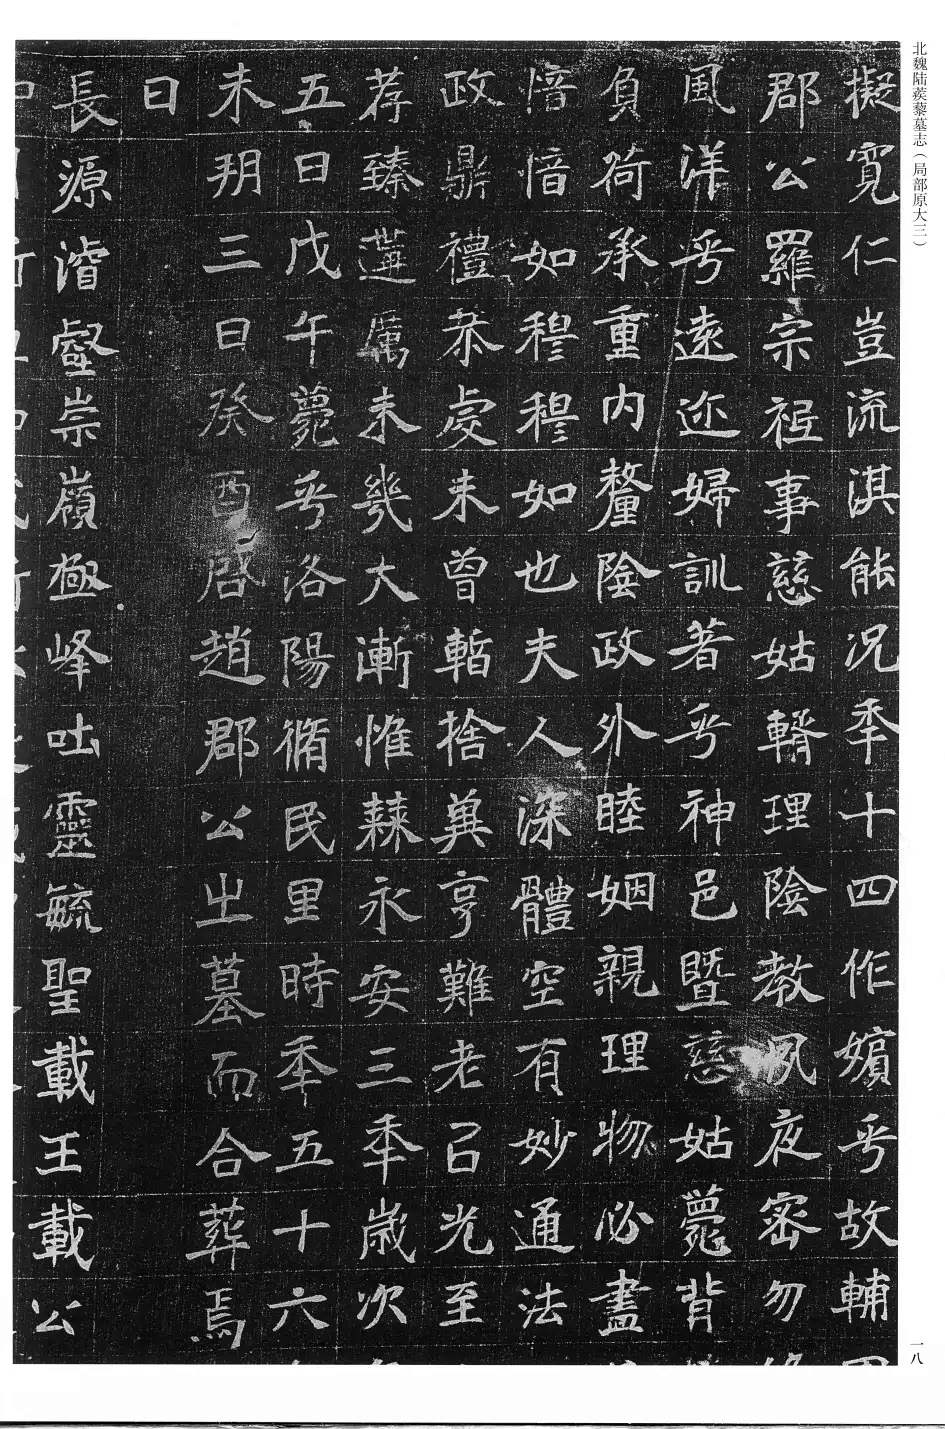 北魏陆蒺藜墓志（局部原大三）
擬寬仁豈流淇能況季十四作嬪乎故輔
郡公羅宗祖事慈姑輯理陰教夙夜密勿
風洋乎遠迩婦訓著乎神邑暨慈姑薨背
負荷承重内釐陰政外睦姻親理物必盡
愔愔如穆穆如也夫人深體空有妙通法
政鼎禮恭虔未曾暫捨冀享難老召光至
荐臻遘厲未幾大漸惟棘永安三季歲次
五日戊午薨乎洛陽脩民里時季五十六
未玥三日癸酉啓趙郡公之墓而合葬焉
曰
長源濬壑崇嶺極峰吐靈毓聖載王載公
一八